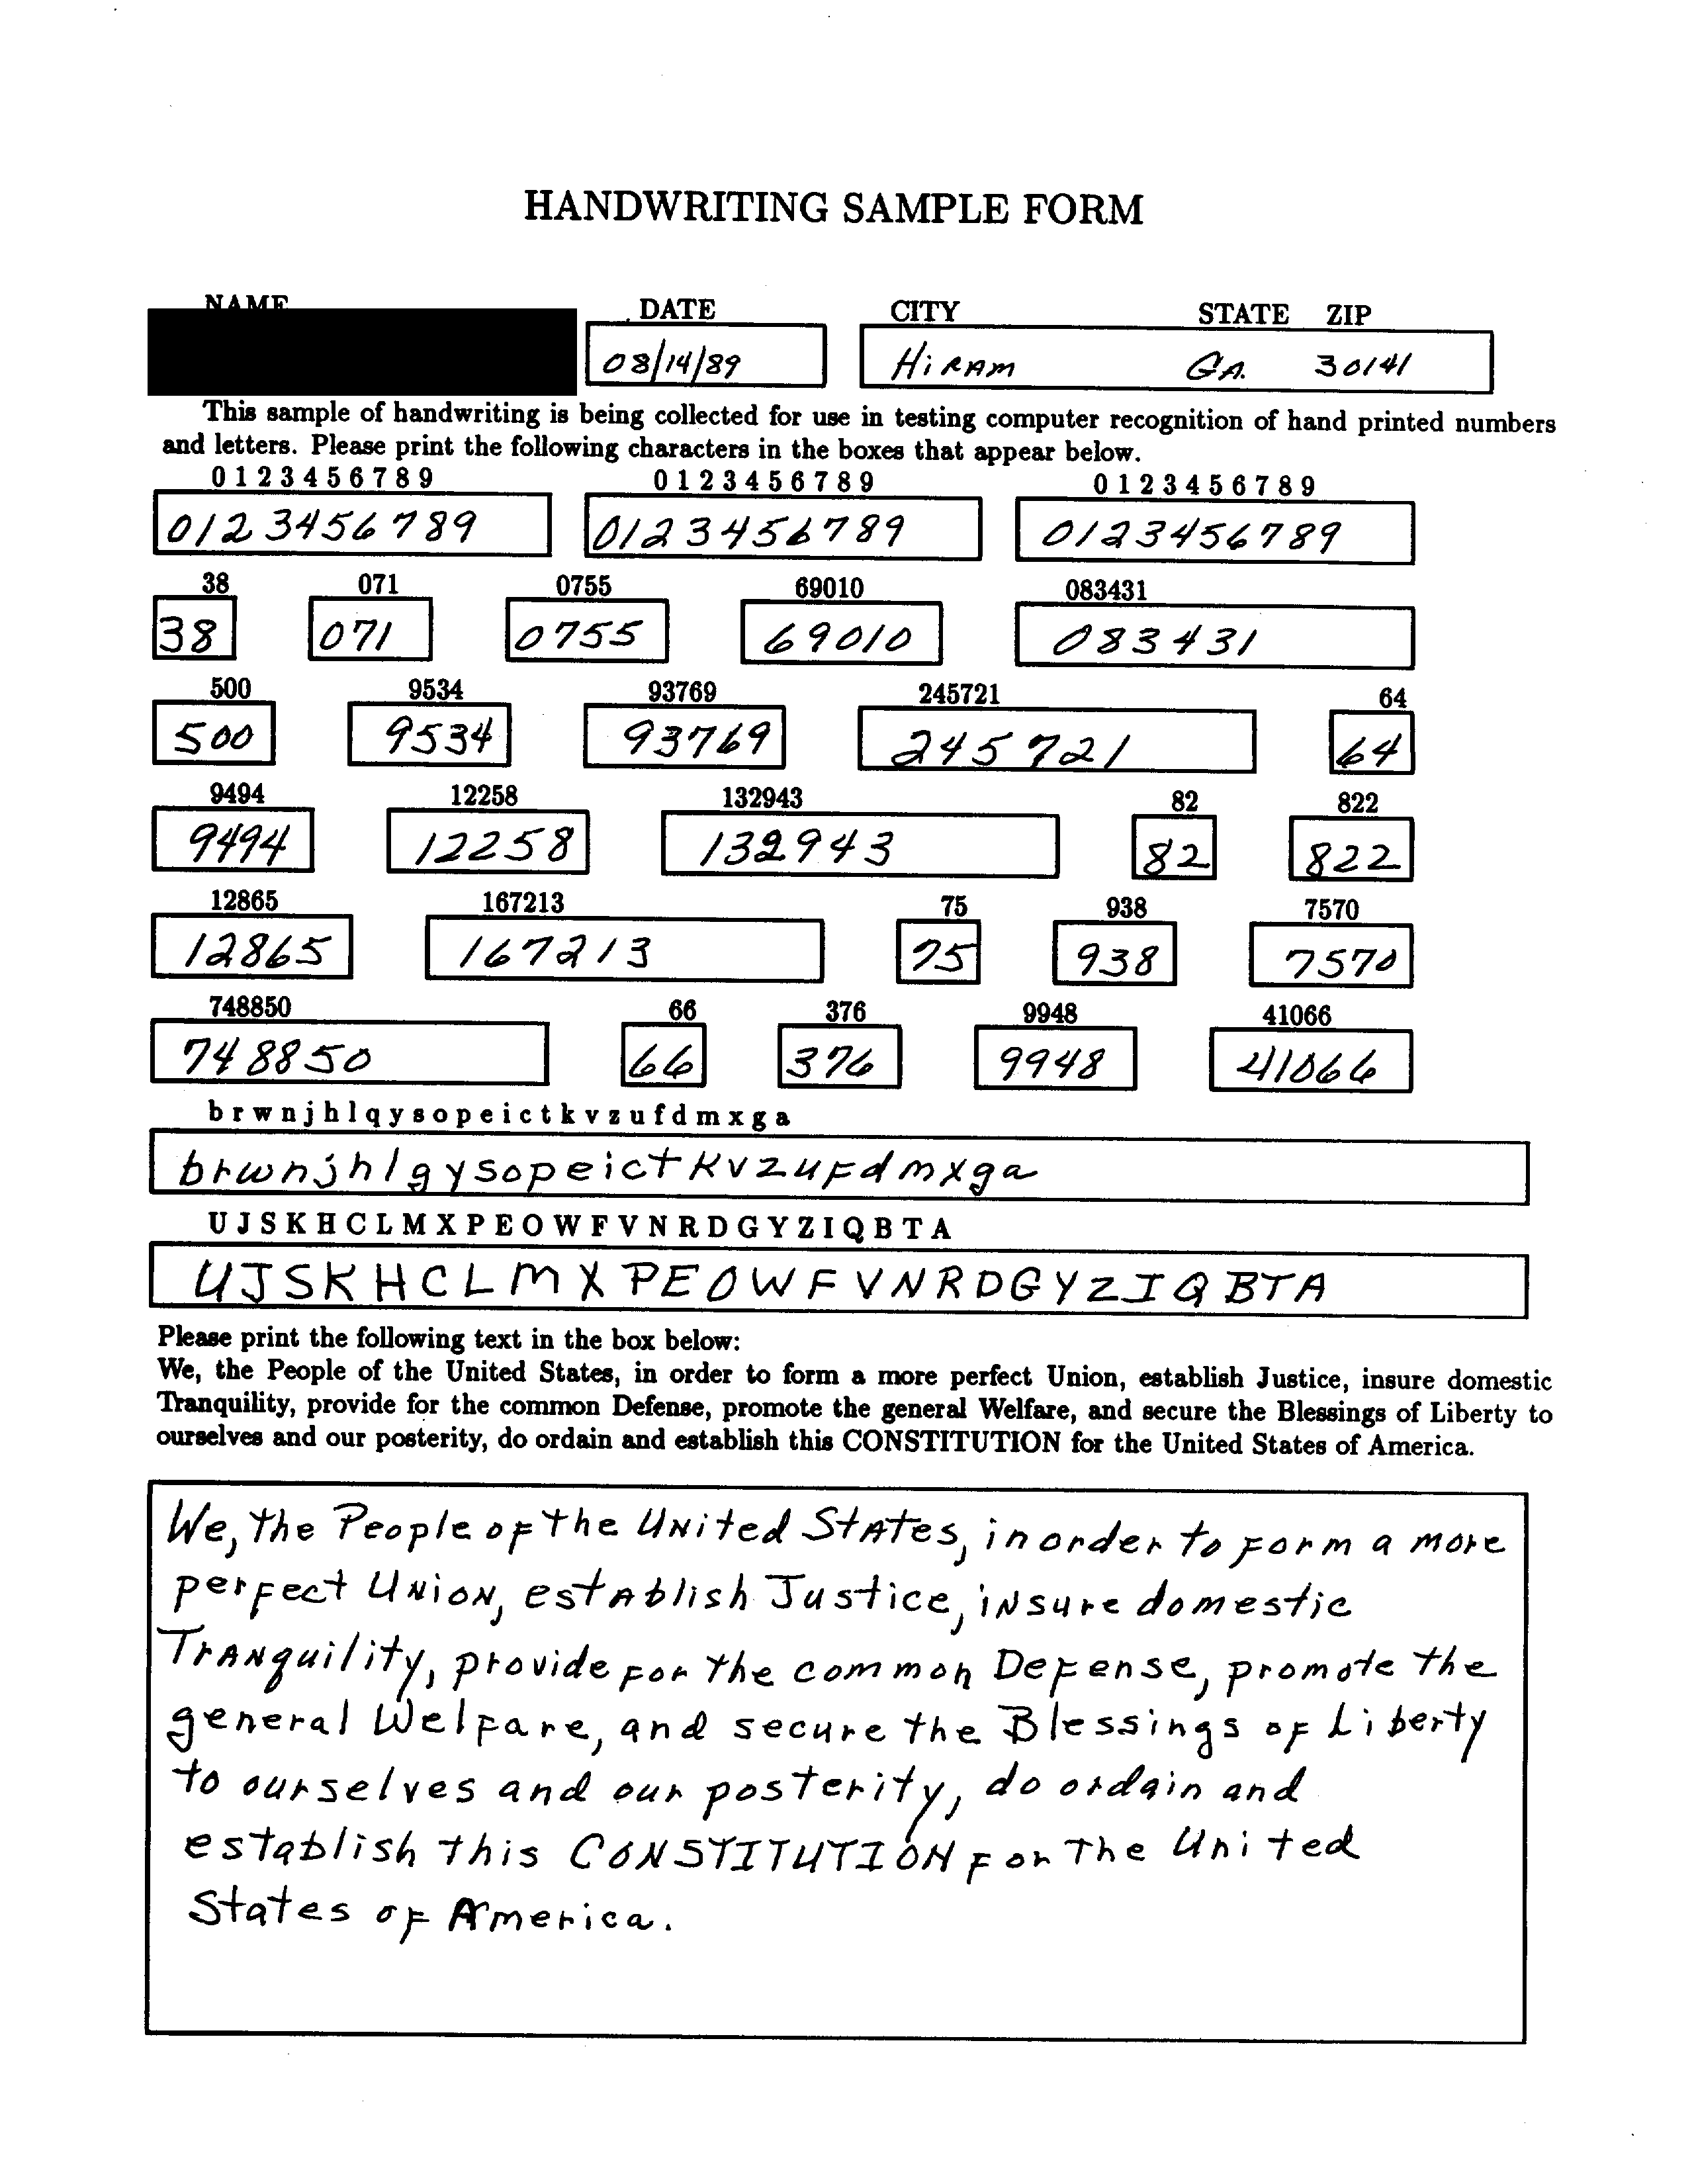 HANDWRITING SAMPLE FORM
NAME DATE CITY STATE ZIP
08/14/89 HiRAM GA. 30141
This sample of handwriting is being collected for use in testing computer recognition of hand printed numbers
and letters. Please print the following characters in the boxes that appear below.
0 1 2 3 4 5 6 7 8 9 0 1 2 3 4 5 6 7 8 9 0 1 2 3 4 5 6 7 8 9
0123456789 0123456789 0123456789
38 071 0755 69010 083431
38 071 0755 69010 083431
500 9534 93769 245721 64
500 9534 93769 245721 64
9494 12258 132943 82 822
9494 12258 132943 82 822
12865 167213 75 938 7570
12865 167213 75 938 7570
748850 66 376 9948 41066
748850 66 376 9948 41066
b r w n j h l q y s o p e i c t k v z u f d m x g a
brwnjhlgysopeictkvzuFdmxga
U J S K H C L M X P E O W F V N R D G Y Z I Q B T A
UJSKHCLMXPEOWFVNRDGYZIQBTA
Please print the following text in the box below:
We, the People of the United States, in order to form a more perfect Union, establish Justice, insure domestic
Tranquility, provide for the common Defense, promote the general Welfare, and secure the Blessings of Liberty to
ourselves and our posterity, do ordain and establish this CONSTITUTION for the United States of America.
We, the People of the United States, in order to form a more
perfect Union, establish Justice, insure domestic
Tranquility, provide for the common Defense, promote the
general Welfare, and secure the Blessings of Liberty
to ourselves and our posterity, do ordain and
establish this CONSTITUTION For The United
States of America.